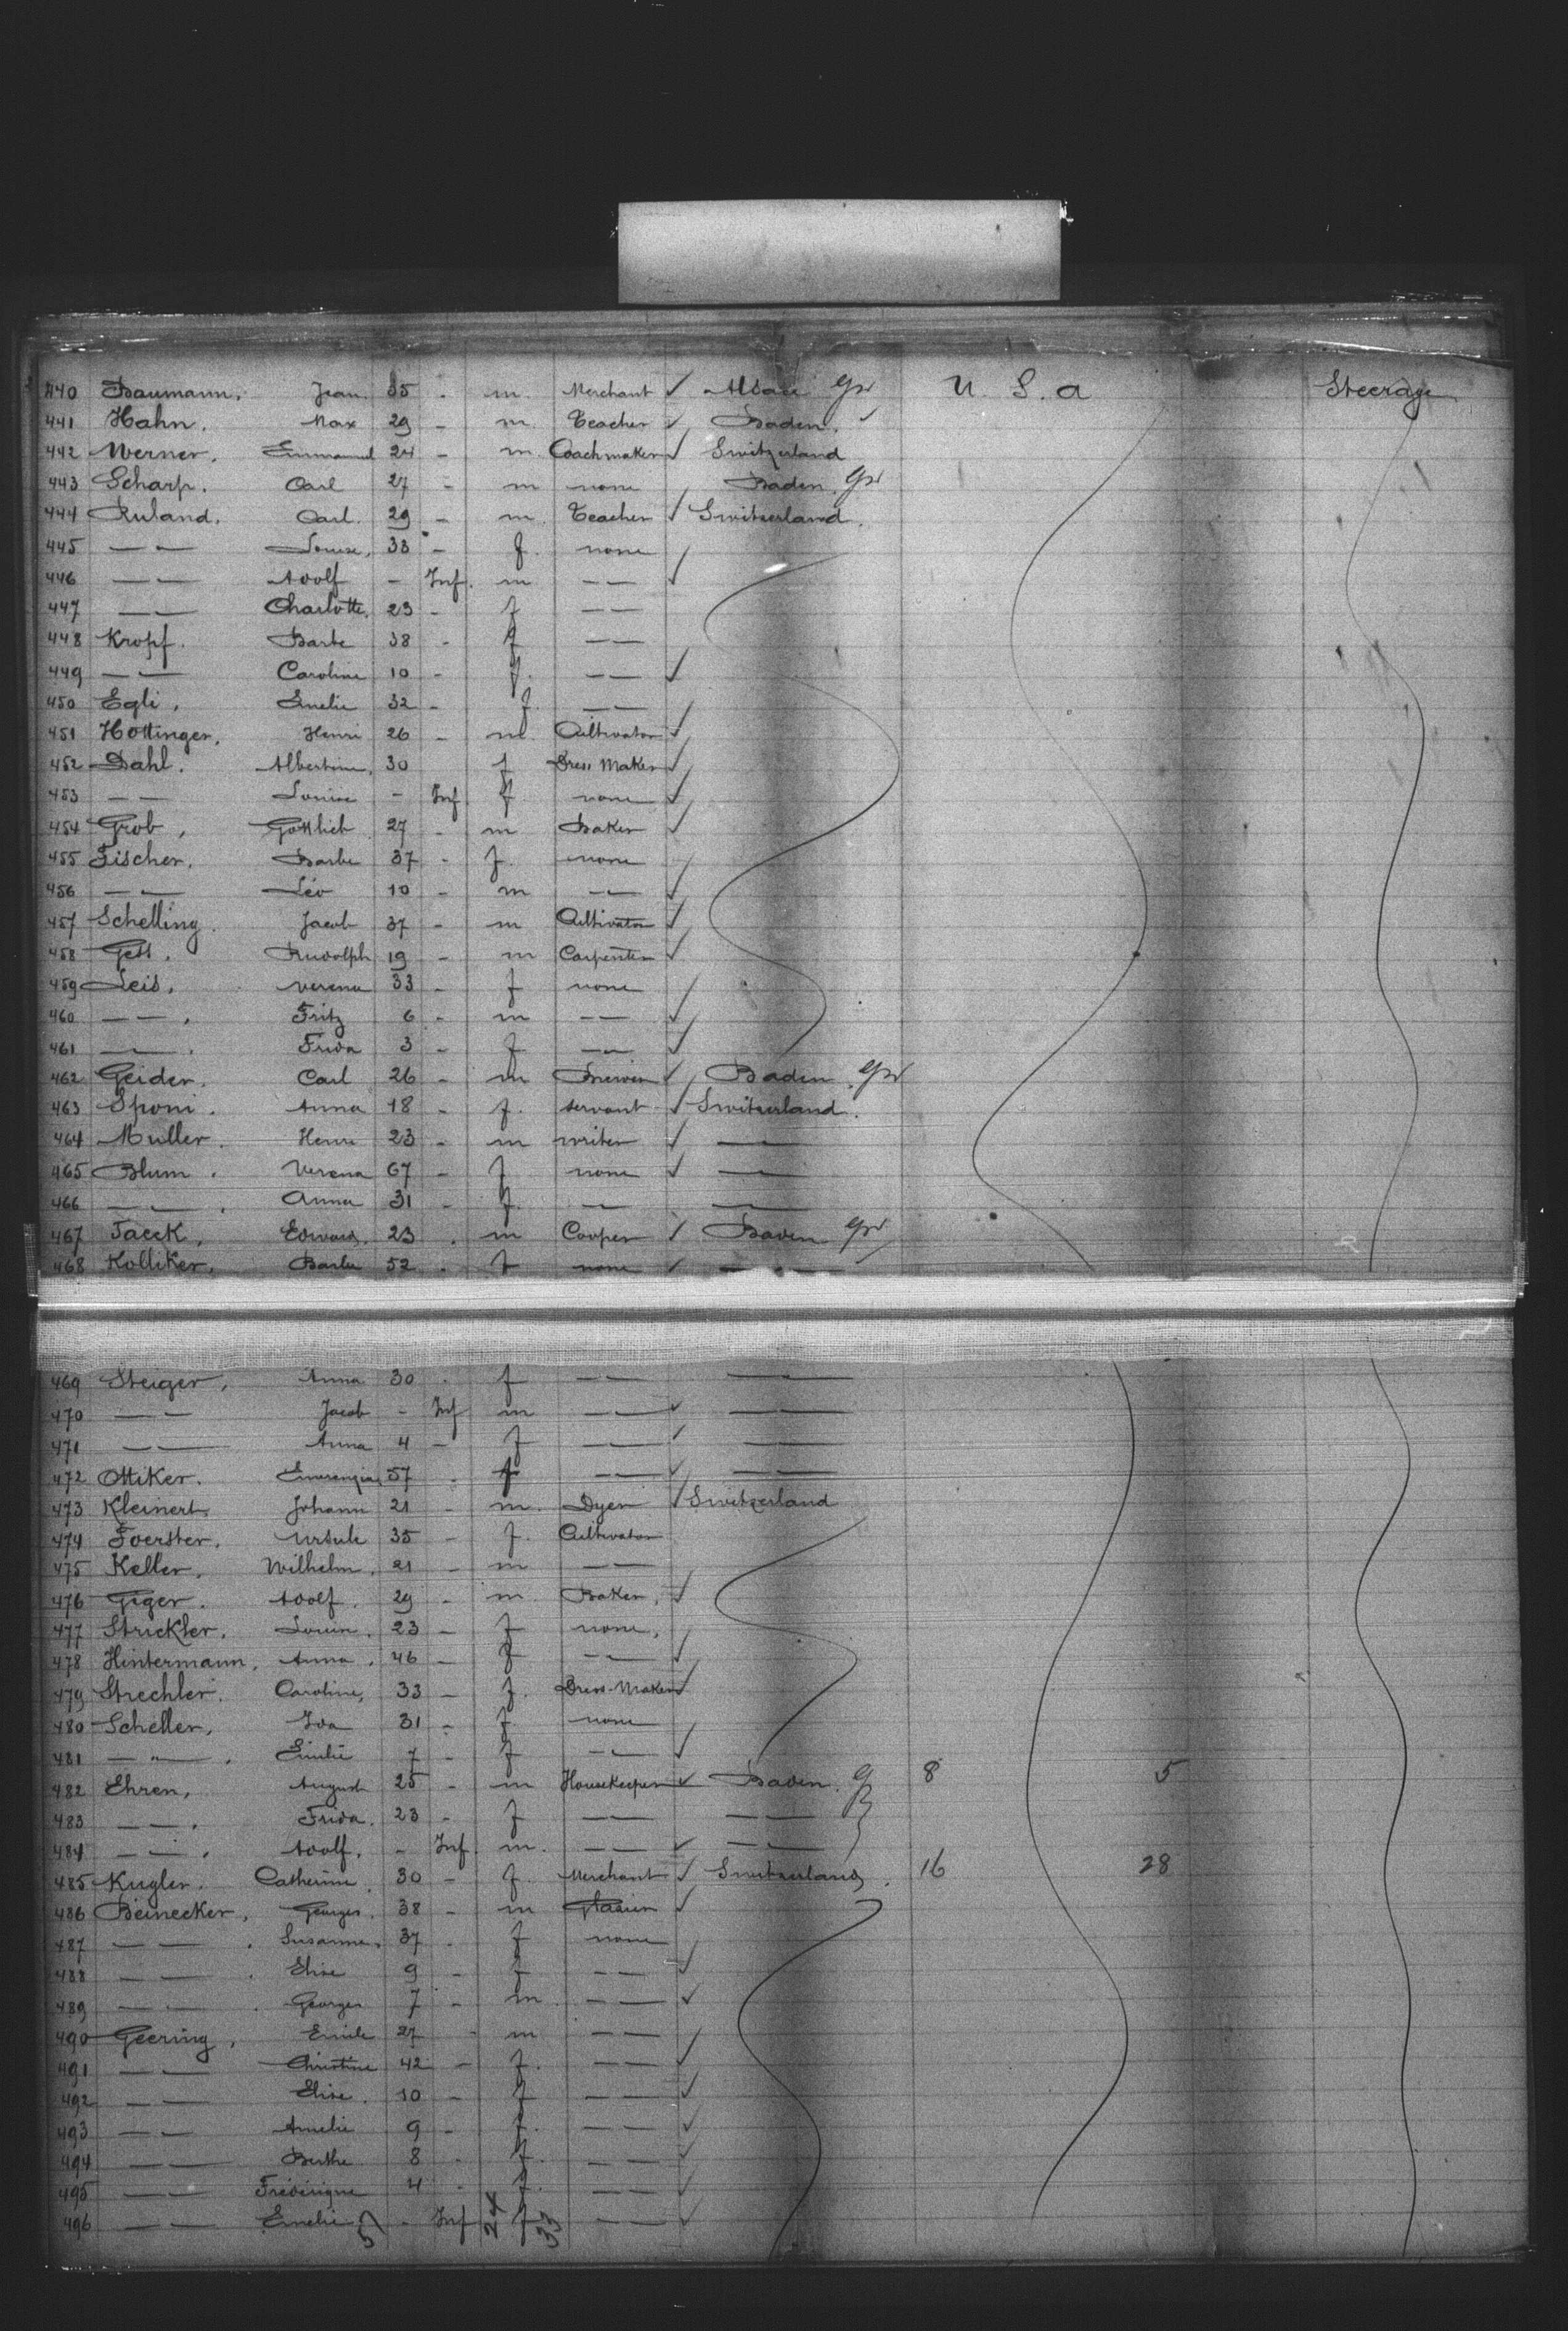 440 Baumann, Jean 35 - m. Merchant ✓ Alsace Gr U. S. a Steerage
441 Hahn. Max 29 - m. Teacher ✓ Baden. ✓
442 Werner. Emmanuel 24 - m. Coachmaker ✓ Switzerland
443 Scharp. Carl 27 - m none Baden. Gr
444 Ruland. Carl. 29 - m. Teacher ✓ Switzerland.
445 — — Louise, 33 - f. none ✓
446 — — Adolf - Inf. m — — ✓
447 — — Charlotte. 23 - f — —
448 Kropf. Barbe 38 - f — —
449 — — Caroline 10 - f. — — ✓
450 Egli, Emelie 32 - f. — —
451 Hottinger, Henri 26 - m. Cultivator ✓
452 Dahl. Albertine. 30 f Dress Maker ✓
453 — — Louise - Inf f. none ✓
454 Grob, Gottlieb 27 - m Baker ✓
455 Fischer. Barbe 37 - f. none
456 — — Léo 10 - m — — ✓
457 Schelling. Jacob 37 - m Cultivator ✓
458 Rudolph 19 - m Carpenter ✓
459 Leis. Verena 33 - f none
460 — —. Fritz 6 - m — — ✓
461 — —. Frida 3 - f — — ✓
462 Geider. Carl 26 - m Brewer ✓ Baden. Gr
463 Sponi. Anna 18 - f. servant ✓ Switzerland.
464 Muller. Henri 23 - m writer ✓ — —
465 Blum. Verena 67 - f none ✓ — —
466 — —. Anna 31 - f. — — — —
467 Jaeck, Edward. 23 . m Cooper ✓ Baden Gr
468 Kolliker. Barbe 52 . f none ✓ — —
469 Steiger, Anna 30 . f — — — —
470 — — Jacob - Inf m — — ✓ — —
471 — — Anna 4 - f — — ✓ — —
472 Ottiker. 57 . f — — ✓ — —
473 Kleinert. Johann 21 - m. Dyer ✓ Switzerland
474 Foerster. Ursule 35 - f. Cultivator
475 Keller. Wilhelm. 21 - m — —
476 Giger. Adolf. 29 - m. Baker. ✓
477 Strickler. 23 - f none.
478 Hintermann. Anna. 46 - f — — ✓
479 Strechler. Caroline, 33 - f. Dress-Maker ✓
480 Scheller, Ida 31 - f. none
481 — " —. Emilie 7 - f — — ✓
482 Ehren, August 25 - m Housekeeper ✓ Baden. G 8 5
483 — —. Frida. 23 - f — — — —
484 — —. Adolf. - Inf m. — — ✓ — —
485 Kugler. Catherine. 30 - f. Merchant ✓ Switzerland. 16 28
486 Beinecker. Georges. 38 - m Glasier ✓
487 — —. Susanne. 37 . f none
488 — —. Elise 9 - f — — ✓
489 — —. Georges 7 - m — — ✓
490 Geering, Emile 27 - m — —
491 — — Christine 42 - f. — — ✓
492 — — Elise. 10 - f — — ✓
493 — — Amelie 9 - f. — — ✓
494 — — Berthe 8 . f. — — ✓
495 — — Frédérique 4 . f. — — ✓
496 — — Emelie 57 - Inf 24 f 33 — — ✓